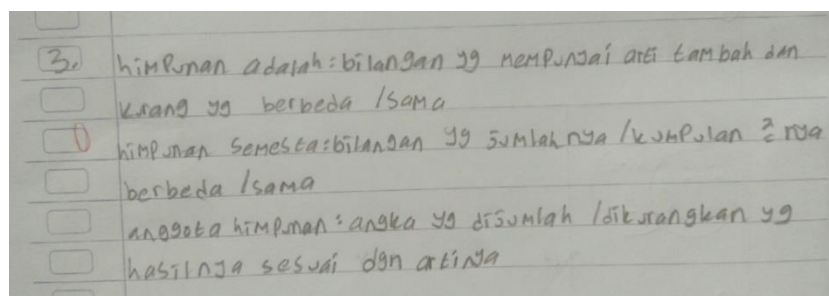 3. himpunan adalah : bilangan yg mempunyai arti tambah dan
kurang yg berbeda / sama
0 himpunan semesta : bilangan yg jumlahnya / kumpulan 2 nya
berbeda / sama
anggota himpunan : angka yg dijumlah / dikurangkan yg
hasilnya sesuai dgn artinya